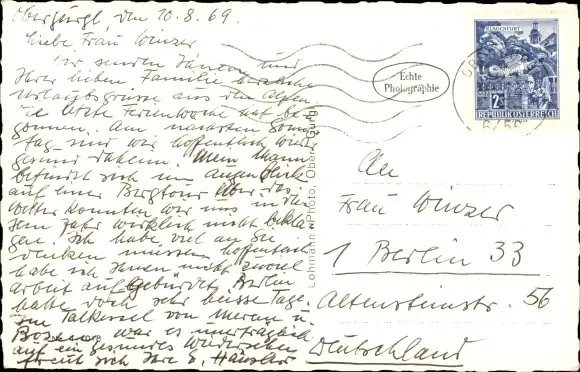 Obergurgl den 10.8.69.
Liebe Frau Winzer
Wir senden Ihnen und
Ihrer lieben Familie herzliche
Urlaubsgrüsse aus den Alpen
Die letzte Ferienwoche hat be
gonnen. Am nächsten Sonn
tag sind wir hoffentlich wieder
gesund daheim. Mein Mann
befindet sich im Augenblick
auf einer Bergtour. Über das
Wetter konnten wir uns in die
sem Jahr wirklich nicht bekla
gen. Ich habe viel an Sie
denken müssen, hoffentlich
habe ich Ihnen nicht zuviel
Arbeit aufgebürdet. Berlin
hatte doch sehr heisse Tage.
Im Talkessel von Meran u.
Bozen war es unerträglich
auf ein gesundes Wiedersehen
freut sich Ihre E. Häusler
Echte
Photographie
KLAGENFURT
2S
REPUBLIK ÖSTERREICH
6456
Lohmann Photo, Ober-Gurgl
An
Frau Winzer
1 Berlin 33
Altensteinstr. 56
Deutschland